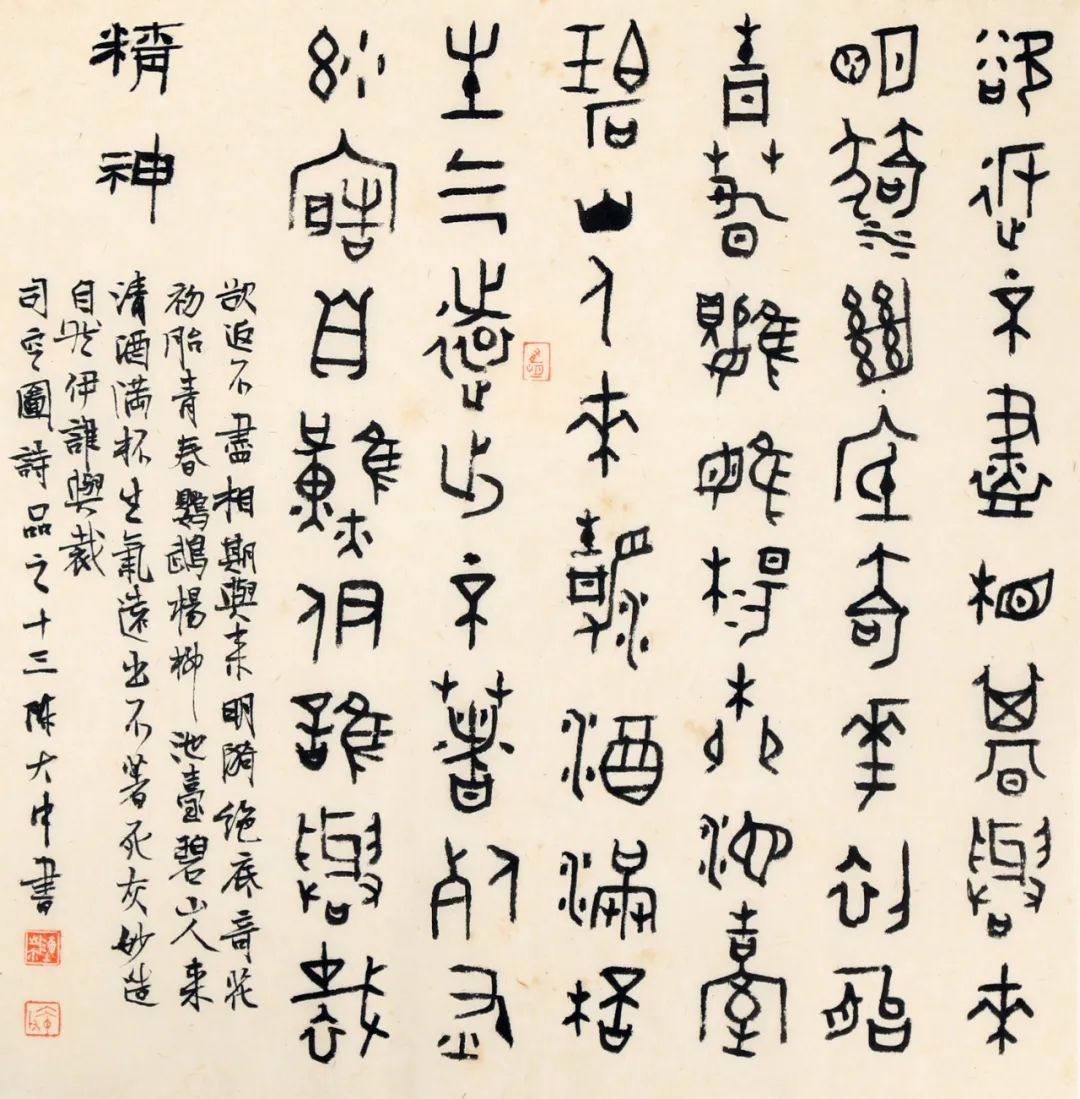 欲返不盡相期與來
明漪絕底奇華初胎
青春鸚鵡楊柳池臺
碧山人來清酒滿杯
生气遠出不著死灰
妙造自然伊誰與裁
精神
欲返不盡相期與来明漪絶底奇花
初胎青春鸚鵡楊柳池臺碧山人来
清酒满杯生氣遠出不著死灰妙造
自然伊誰與裁
司空圖詩品之十三陈大中書